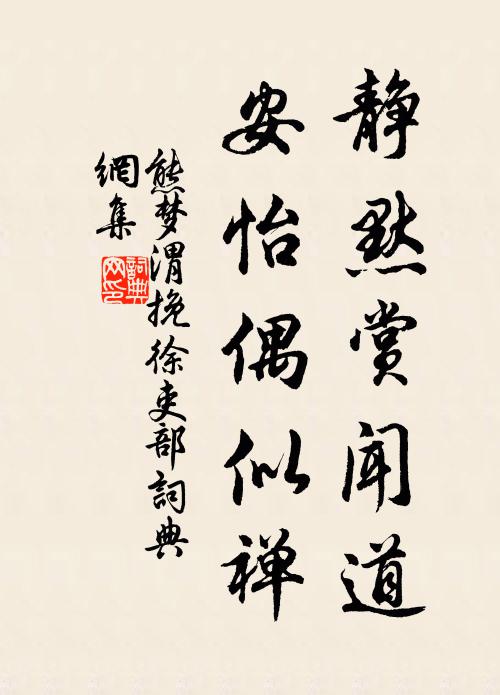 静默赏闻道
安怡偶似禅
熊梦渭挽徐吏部詞典
網集
詞典网印